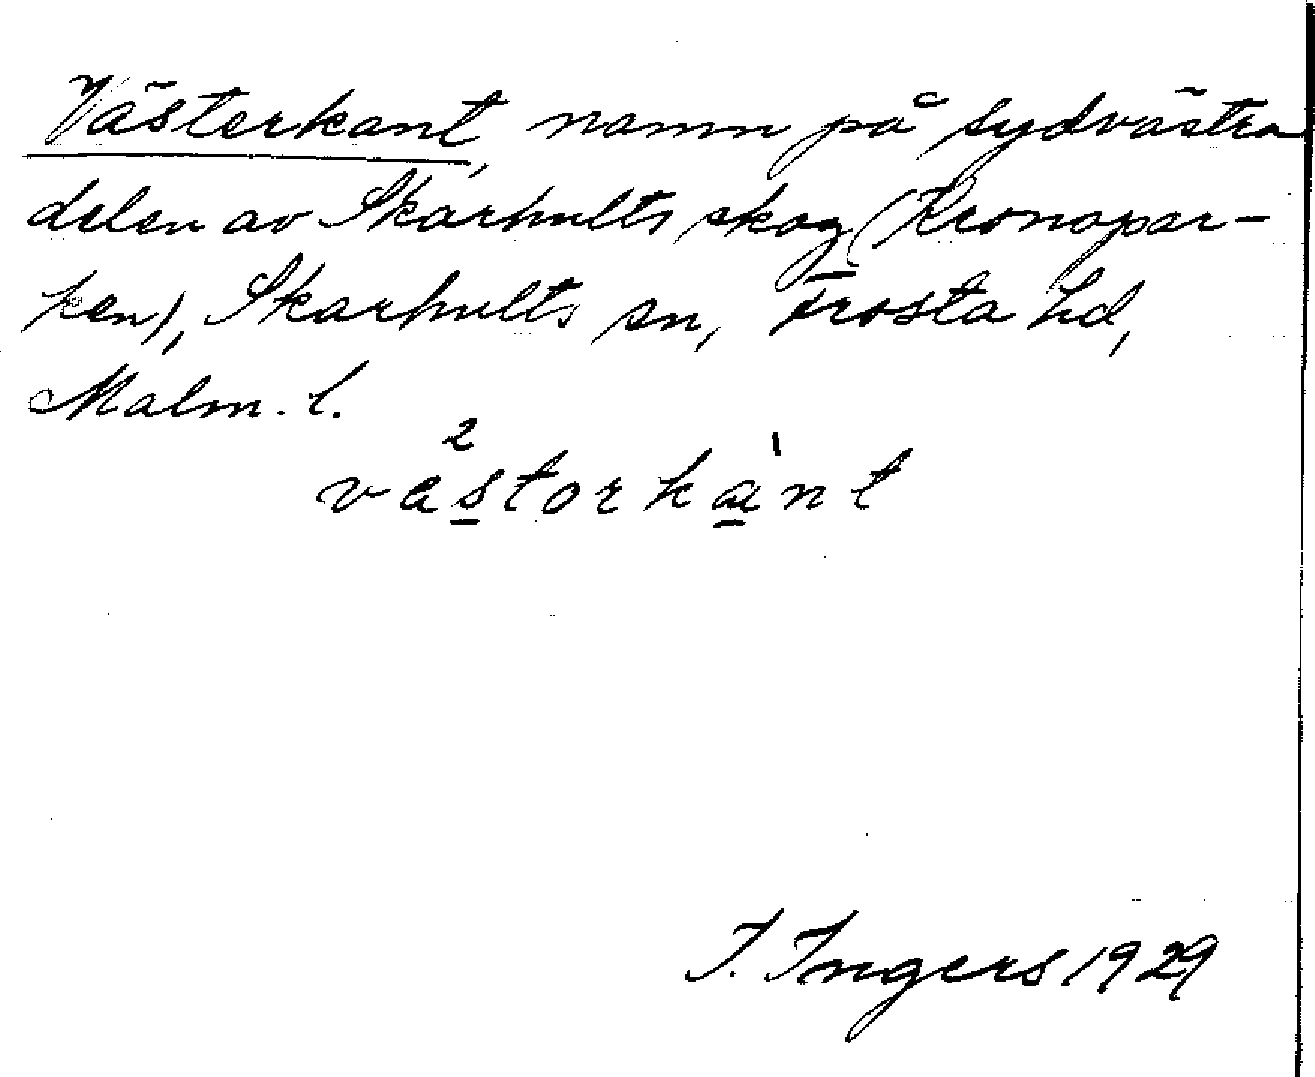 Västerkant, namn på sydvästra
delen av Skarhults skog (Kronopar-
ken), Skarhults sn, Frosta hd,
Malm. l.
västorkànt
I. Ingers 1929